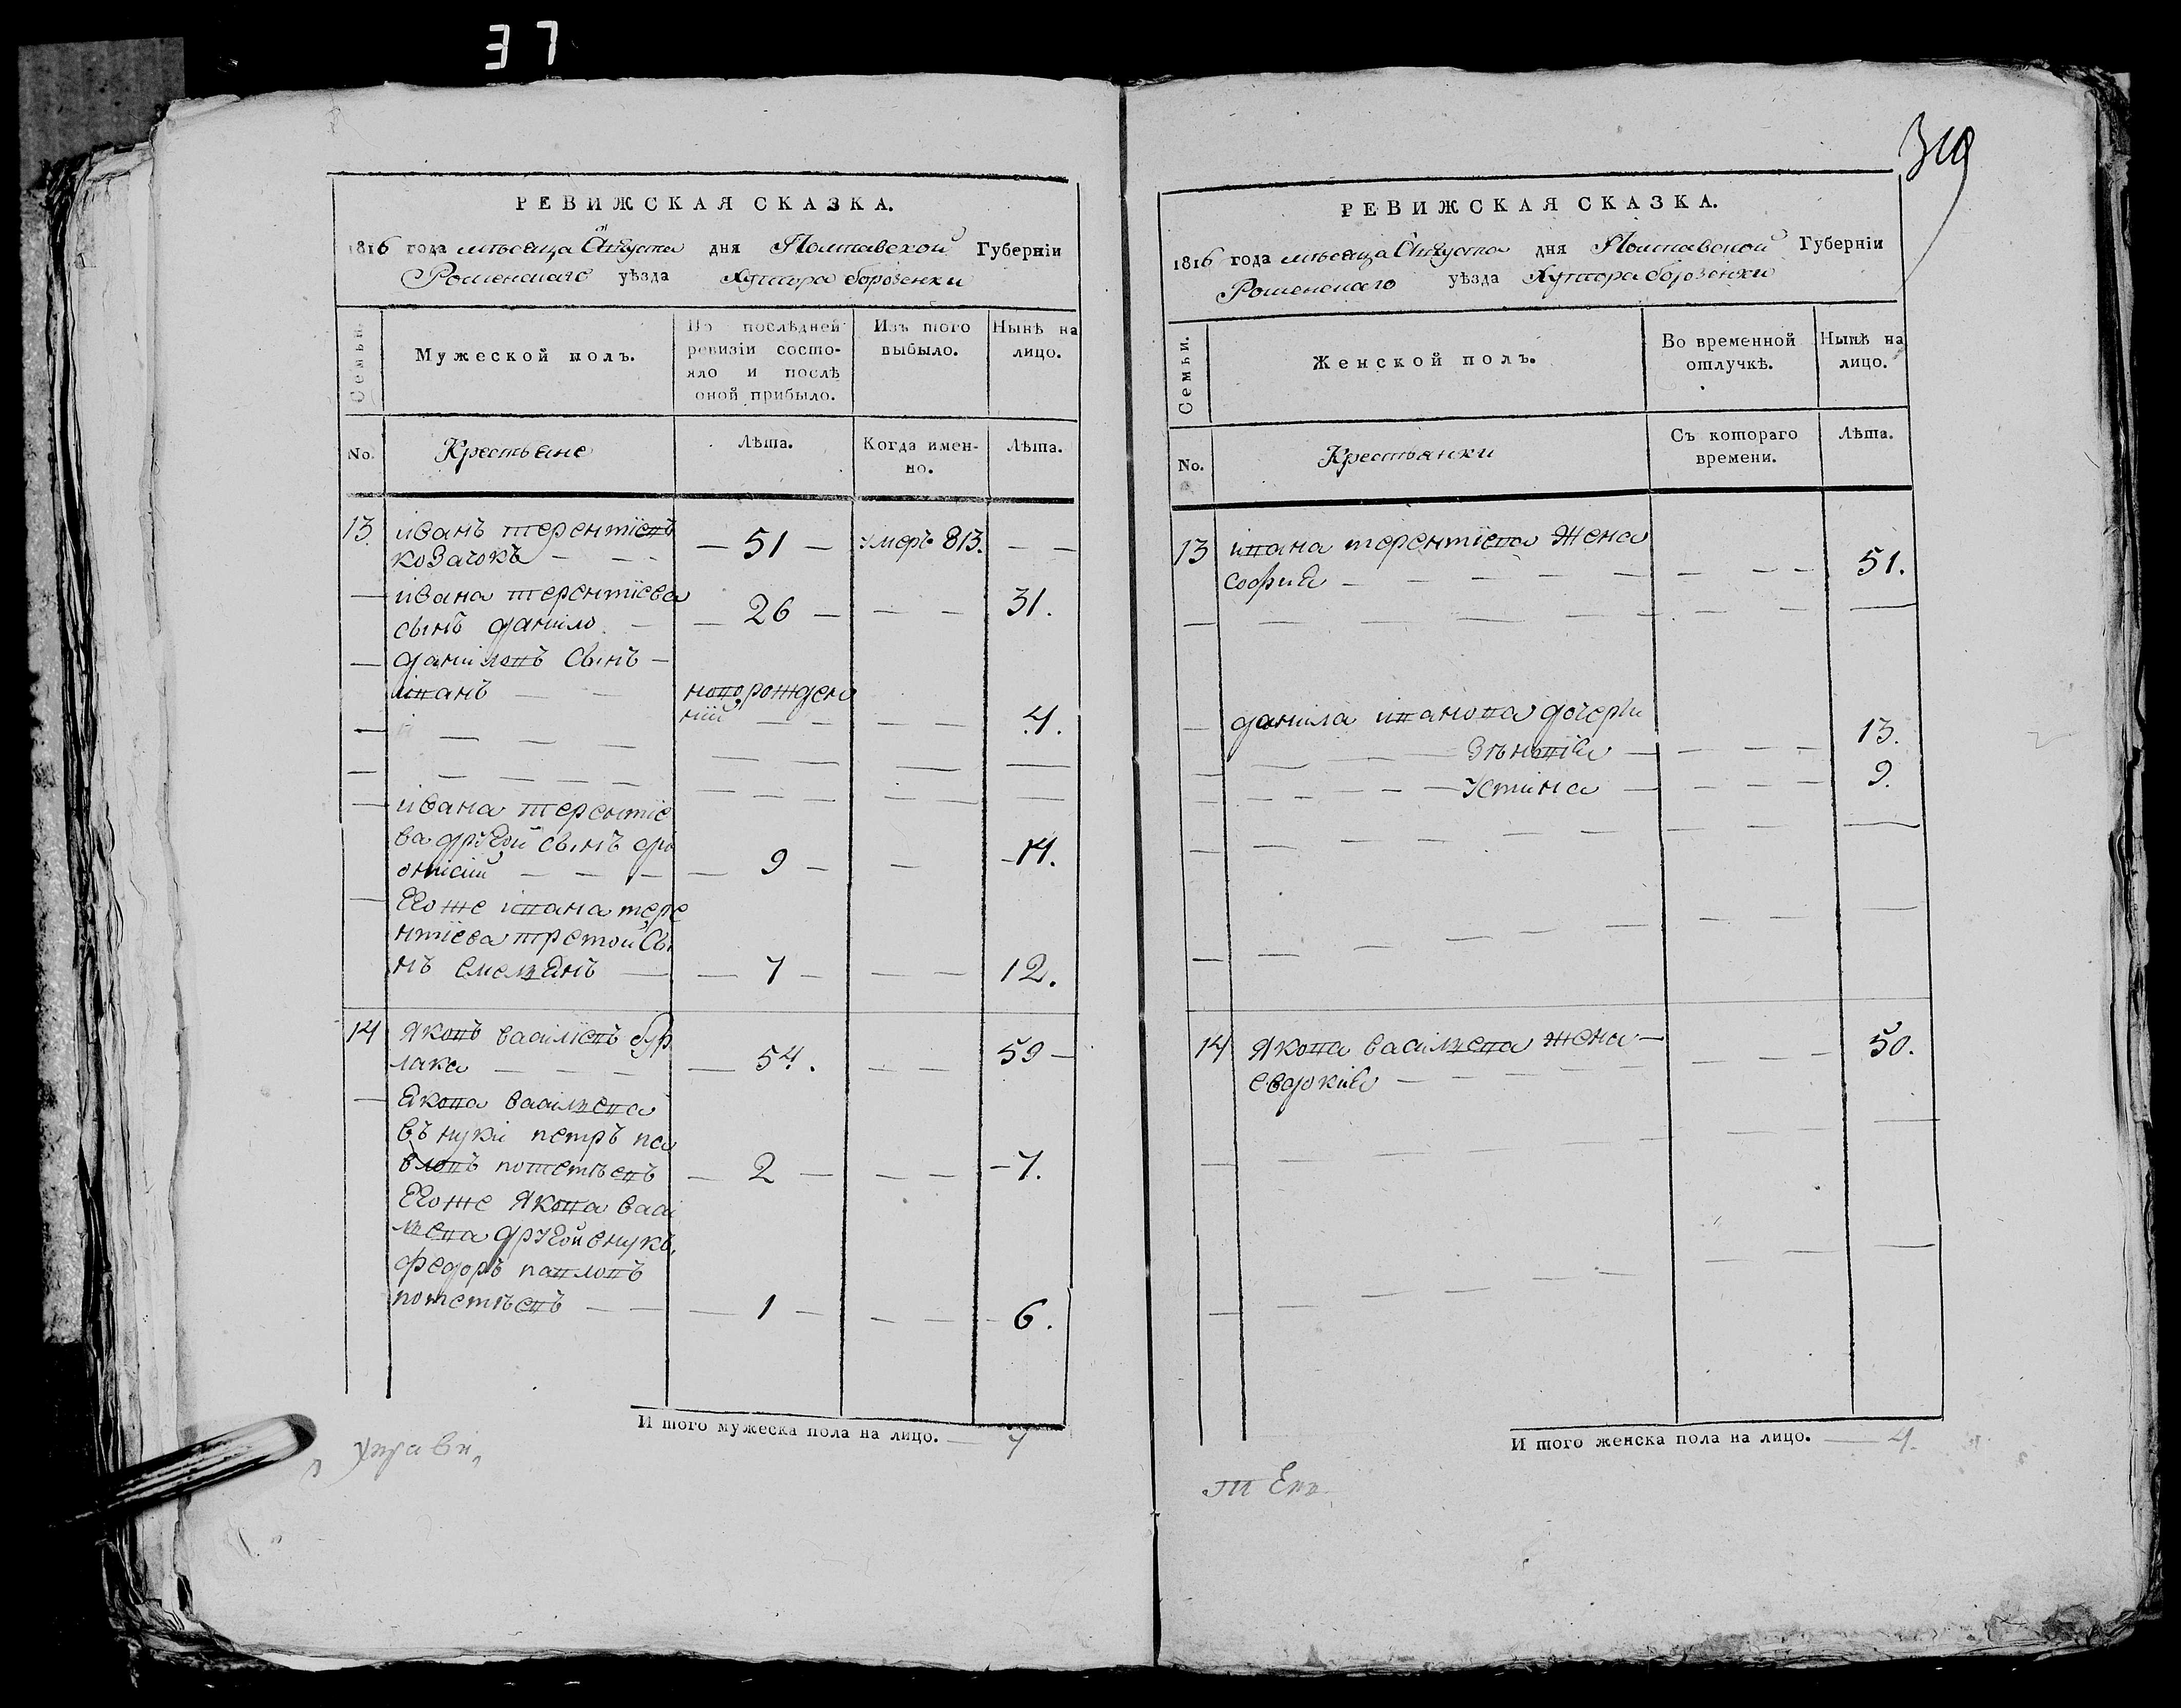 37
319
РЕВИЖСКАЯ СКАЗКА.
1816 года мѣсяца Августа дня Полтавской Губерніи
Роменскаго уѣзда Хутора борозенки
Семьи.
Мужеской полъ.
По послѣдней ревизіи состояло и послѣ оной прибыло.
Изъ того выбыло.
Нынѣ на лицо.
No. Крестьяне
Лѣта.
Когда именно.
Лѣта.
13. іванъ терентіевъ
козачокъ — — — 51 — умеръ 813. — —
— івана терентіева
сынъ данило — — 26 — — — 31.
— даниловъ сынъ —
іванъ — — новорожден
ній — — — — 4.
— івана терентіе
ва другой сынъ
— — — — 9 — — — 14.
— Его же івана тере
нтіева третой сы
нъ емелянъ — — 7 — — — 12.
14 Яковъ васіліевъ бур
лака — — — — 54. — — 59 —
— Якова васілева
въ нуки петръ па
вловъ потетѣевъ — 2 — — — 7.
Его же Якова васі
лева другой внукъ
федоръ павловъ
потетѣевъ — — — 1 — — — 6.
И того мужеска пола на лицо. — 7
РЕВИЖСКАЯ СКАЗКА.
1816 года мѣсяца Августа дня Полтавской Губерніи
Роменскаго уѣзда Хутора борозенки
Семьи.
Женской полъ.
Во временной отлучкѣ.
Нынѣ на лицо.
No. Крестьянки
Съ котораго времени.
Лѣта.
13 івана терентіева жена
софия — — — — — — — — 51.
— данила іванова дочери
— — Зѣновія — — — — 13.
— — — — — Устина — — — — 9.
14 Якова васілева жена —
евдокия — — — — — — — 50.
И того женска пола на лицо. — 4.